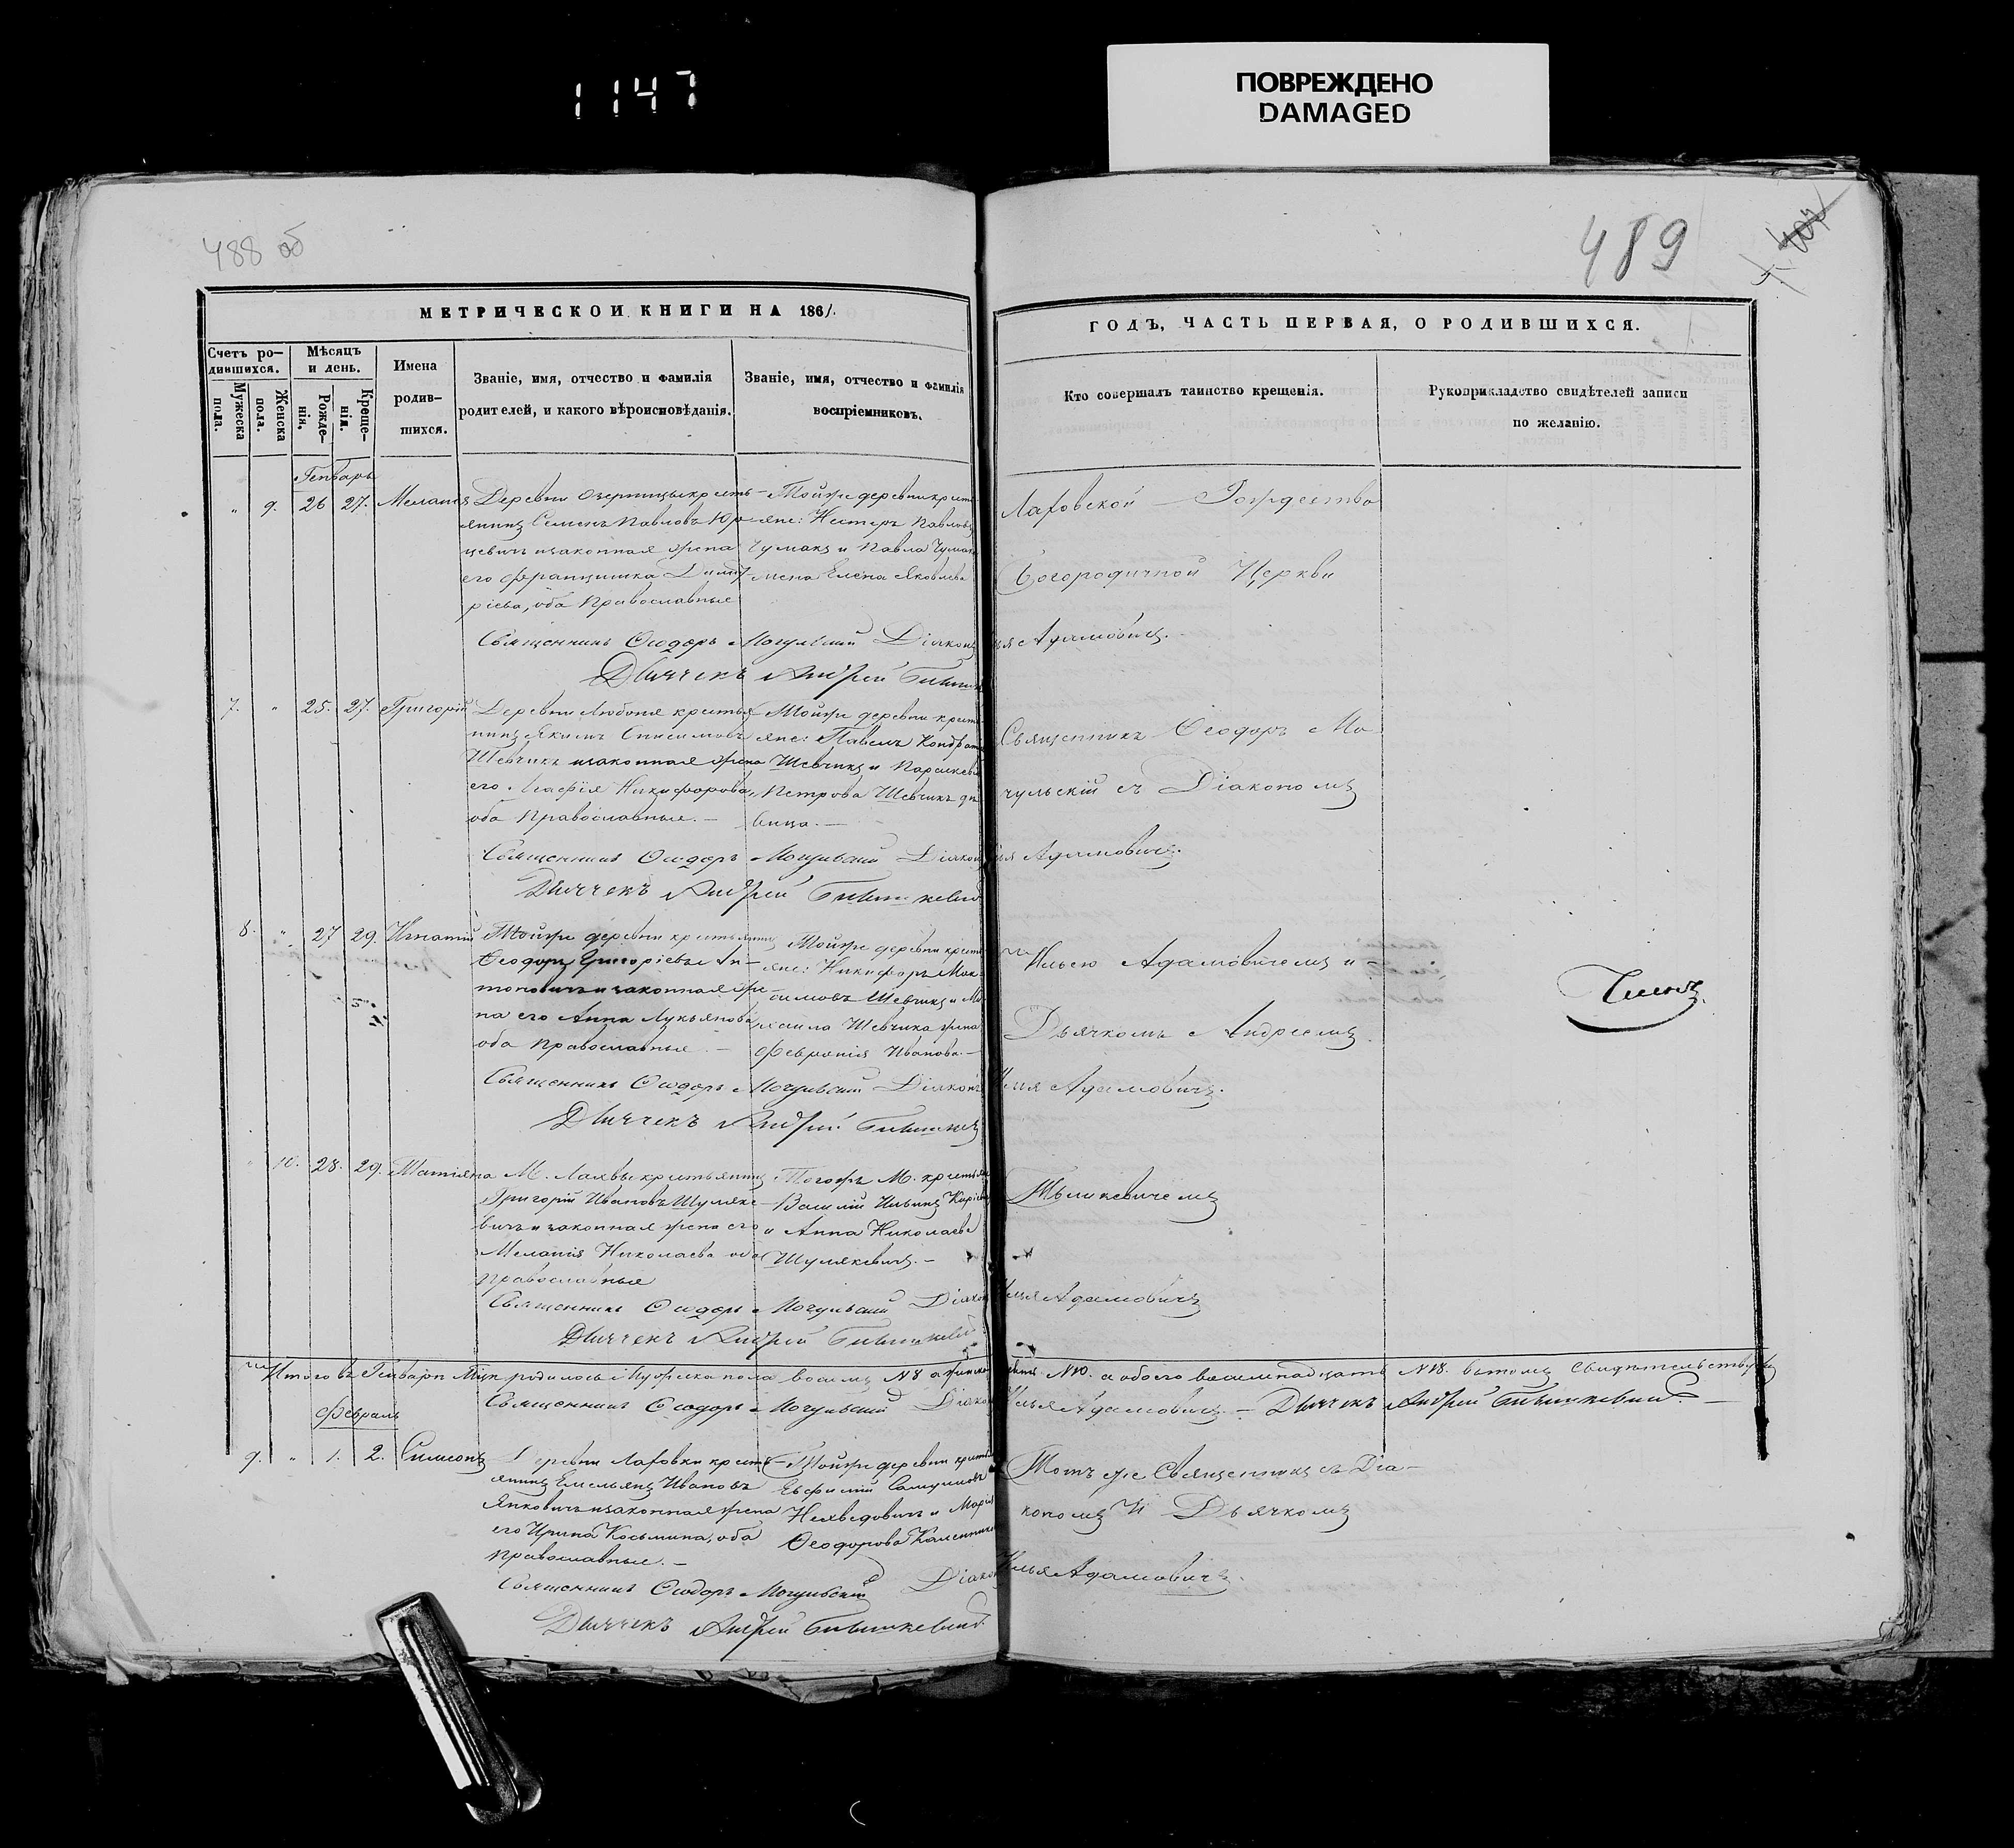 1147
ПОВРЕЖДЕНО
DAMAGED
488 об
489
МЕТРИЧЕСКОЙ КНИГИ НА 1861.
ГОДЪ, ЧАСТЬ ПЕРВАЯ, О РОДИВШИХСЯ.
Счетъ ро-
дившихся.
Мужеска
пола.
Женска
пола.
Мѣсяцъ
и день.
Рожде-
нія.
Креще-
нія.
Имена
родив-
шихся.
Званіе, имя, отчество и фамилія
родителей, и какого вѣроисповѣданія.
Званіе, имя, отчество и фамилія
воспріемниковъ.
Кто совершалъ таинство крещенія.
Рукоприкладство свидѣтелей записи
по желанію.
Генварь
" 9. 26 27. Меланія
Деревни Озерницы кресть-
янинъ Семенъ Павловъ Юр-
цевичъ и законная жена
его Францишка Димит-
ріева, оба Православные
Тойже деревни кресть-
яне: Нестеръ Павловъ
Чумакъ и Павла Чумака
жена Елена Яковлева
Лаховской Рождество
Богородичной Церкви
Священникъ Ѳеодоръ Могульскій Діаконъ Илья Адамовичъ.
Дьячекъ Андрей
7. " 25. 27. Григорій
Деревни Любоня кресть-
нинъ Якимъ Онисимовъ
Шевчикъ и законная жена
его Агафія Никифорова,
оба Православные.—
Тойже деревни кресть-
яне: Павелъ Кондрат
Шевчикъ и Параскева
Петрова Шевчикъ дѣ-
вица.—
Священникъ Ѳеодоръ Мо-
гульскій съ Діакономъ
Священникъ Ѳеодоръ Могульскій Діаконъ Илья Адамовичъ.
Дьячекъ Андрей
8. " 27 29. Игнатій
Тойже деревни крестьянинъ
Ѳеодоръ Григоріевъ Ан-
тоновичъ и законная же-
на его Анна Лукьянова
оба Православные.—
Тойже деревни кресть-
яне: Никифоръ Мак-
симовъ Шевчикъ и Ми-
хаила Шевчика жена
Февронія Иванова.—
Ильею Адамовичемъ и
Дьячкомъ Андреемъ
Членъ
Священникъ Ѳеодоръ Могульскій Діаконъ Илья Адамовичъ.
Дьячекъ Андрей
" 10. 28. 29. Татіяна
М. Лахвы крестьянинъ
Григорій Ивановъ Шуляке-
вичъ и законная жена его
Меланія Николаева оба
Православные
Тогожъ М. крестьяне
Василій Ильинъ
и Анна Николаева
Шулякевичъ.—
Священникъ Ѳеодоръ Могульскій Діаконъ Илья Адамовичъ
Дьячекъ Андрей
Итого въ Генварѣ Мцѣ родилось Мужеска пола восемь №8 а женска десять №10. а обоего восемнадцать №18. въ томъ свидѣтельствуемъ
Священникъ Ѳеодоръ Могульскій Діаконъ Илья Адамовичъ.— Дьячекъ Андрей
Февраль
9. " 1. 2. Симеонъ
Деревни Лаховки кресть-
янинъ Емельянъ Ивановъ
Янковичъ и законная жена
его Ирина Косьмина, оба
Православные.—
Тойже деревни крестья
Евфимій Самуиловъ
Нехведовичъ и Марія
Ѳеодорова
Тотъ же Священникъ съ Діа-
кономъ И Дьячкомъ
Священникъ Ѳеодоръ Могульскій Діаконъ Илья Адамовичъ.
Дьячекъ Андрей